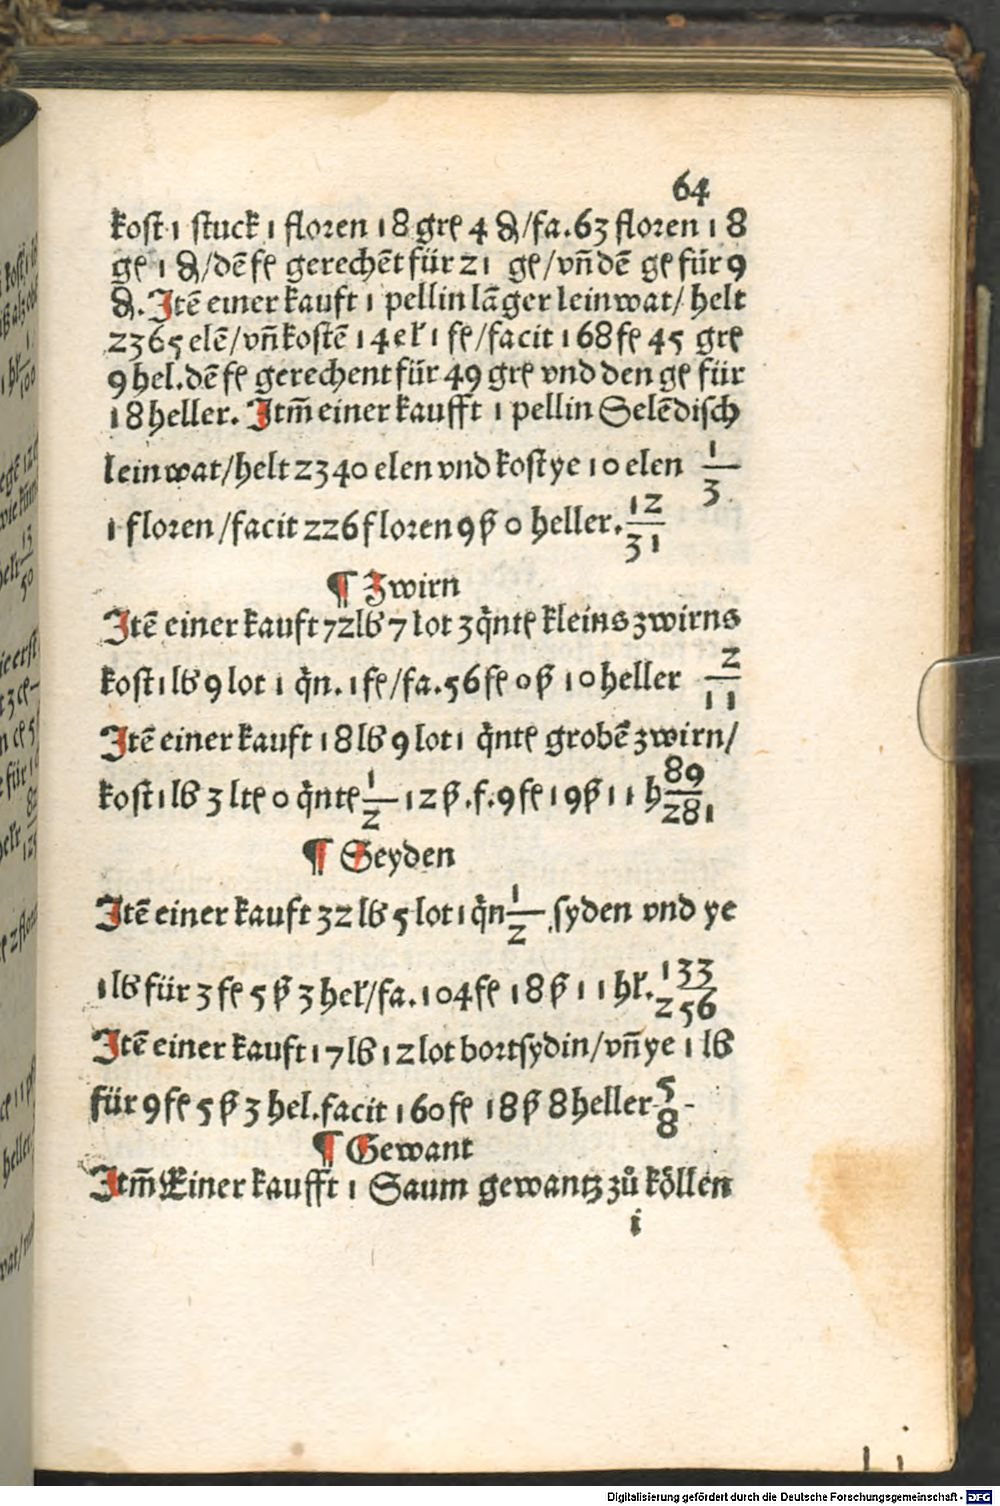 64
kost 1 stuck 1 floren 18 grꝭ 4 ₰/fa.63 floren 18
gꝭ 1 ₰/dē fꝭ gerechēt für 21 gꝭ/vn̄ dē gꝭ für 9
₰. Itē einer kauft 1 pellin lāger leinwat/ helt
2365 elē/vn̄ kostē 14 eł 1 fꝭ/facit 168 fꝭ 45 grꝭ
9 hel.dē fꝭ gerechent für 49 grꝭ vnd den gꝭ für
18 heller. Itm̄ einer kaufft 1 pellin Selēdisch
leinwat/helt 2340 elen vnd kost ye 10 elen 1/3
1 floren/facit 226 floren 9 ß 0 heller. 12/31
¶ Zwirn
Itē einer kauft 72 lb 7 lot 3 q̄ntꝭ kleins zwirns
kost 1 lb 9 lot 1 q̄n. 1 fꝭ/fa.56 fꝭ 0 ß 10 heller 2/11
Itē einer kauft 18 lb 9 lot 1 q̄ntꝭ grobē zwirn/
kost 1 lb 3 ltꝭ 0 q̄ntꝭ 1/2 12 ß.f.9 fꝭ 19 ß 11 h 89/281
¶ Seyden
Itē einer kauft 32 lb 5 lot 1 q̄n 1/2 syden vnd ye
1 lb für 3 fꝭ 5 ß 3 heł/fa.104 fꝭ 18 ß 11 hł. 133/256
Itē einer kauft 17 lb 12 lot bortsydin/vn̄ ye 1 lb
für 9 fꝭ 5 ß 3 hel.facit 160 fꝭ 18 ß 8 heller 5/8
¶ Gewant
Itm̄ Einer kaufft 1 Saum gewantz zů köllen
i
Digitalisierung gefördert durch die Deutsche Forschungsgemeinschaft - DFG